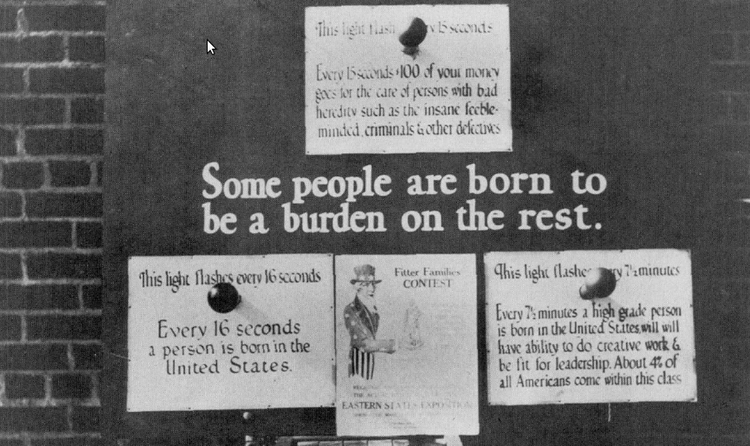 This light flash 15 seconds
Every 15 seconds $100 of your money
goes for the care of persons with bad
heredity such as the insane feeble-
minded, criminals & other defectives
Some people are born to
be a burden on the rest.
This light flashes every 16 seconds
Every 16 seconds
a person is born in the
United States.
Fitter Families
CONTEST
EASTERN STATES EXPOSITION
This light flashe ry 7½ minutes
Every 7½ minutes a high grade person
is born in the United States, will will
have ability to do creative work &
be fit for leadership. About 4% of
all Americans come within this class